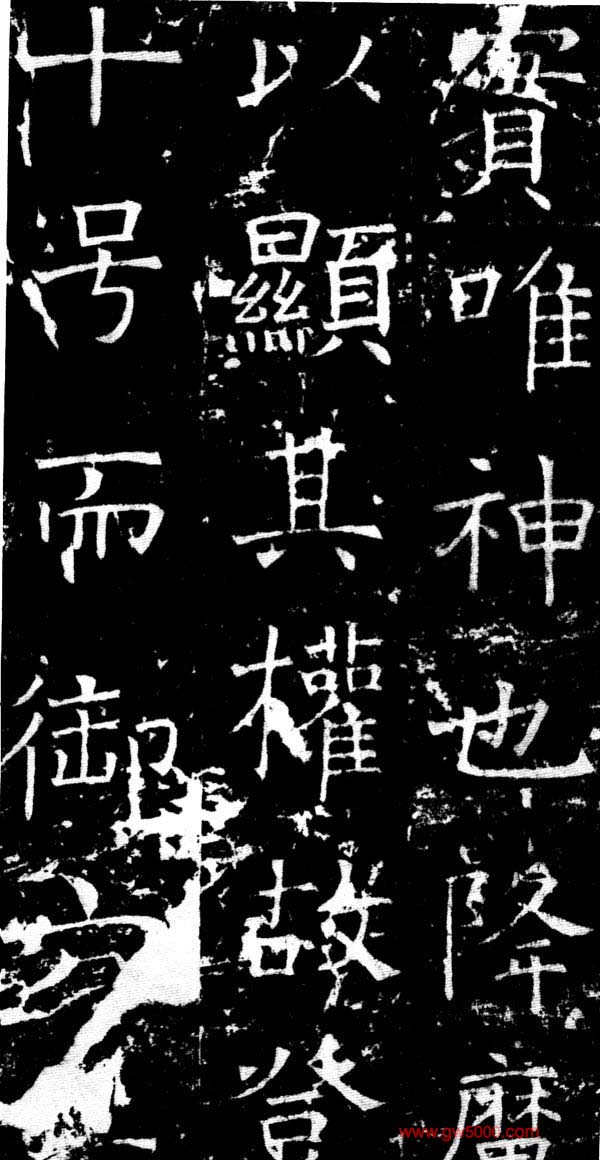 實唯神也降魔
以顯其權故登
十号而御方
www.gw5000.com